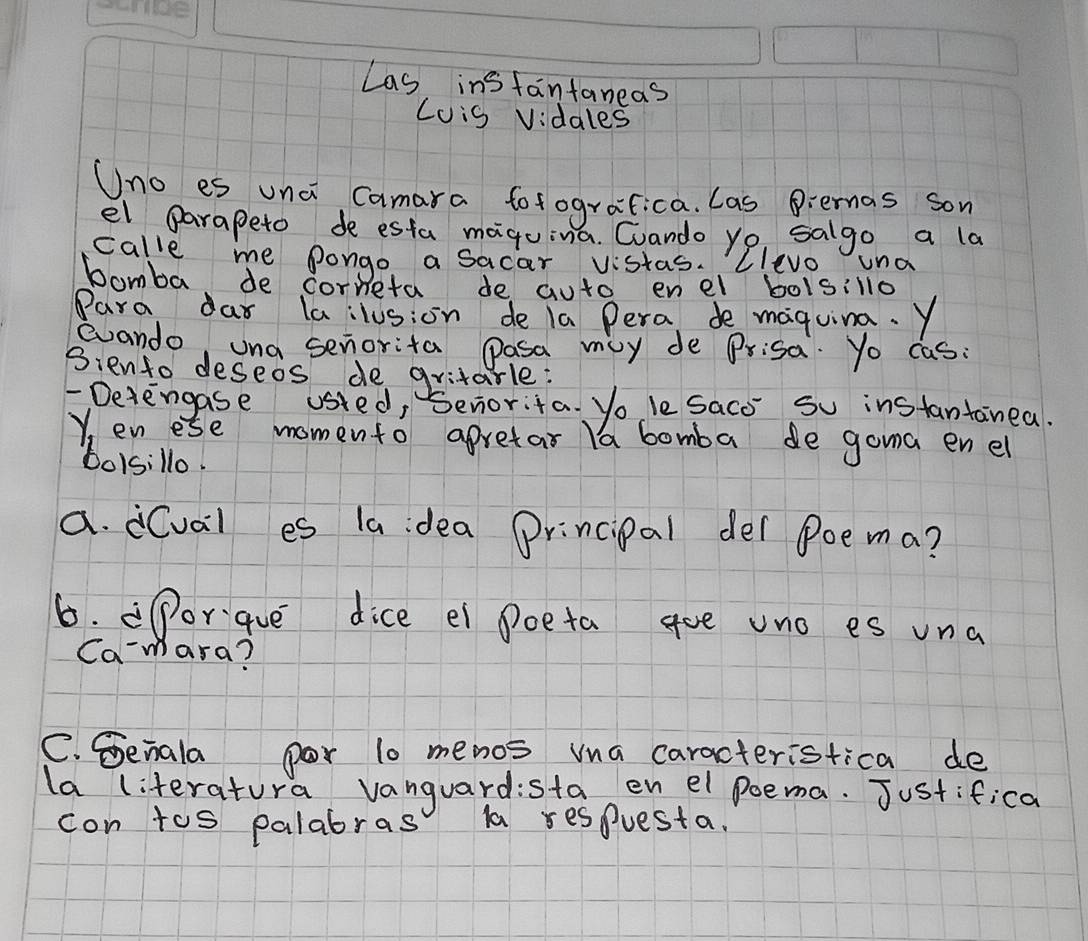 scribe
Las instántaneas
Luis Vidales
Uno es una Camara fotográfica. Las Piernas son
el parapeto de esta máquina. Cuando yo salgo a la
calle me pongo a sacar vistas. Llevo una
bomba de corneta de auto en el bolsillo
Para dar la ilusión de la Pera de maquina. Y
cuando una señorita pasa muy de Prisa. Yo casi
Siento deseos de gritarle:
-Deténgase usted, Señorita. Yo le saco su instantánea.
Y en ese momento apretar la bomba de goma en el
bolsillo.
a. ¿Cuál es la idea Principal del Poema?
b. ¿Por qué dice el Poeta que uno es una
Ca-mara?
C. Señala por lo menos una caracteristica de
la literatura vanguardista en el poema. Justifica
con tus palabras la respuesta.